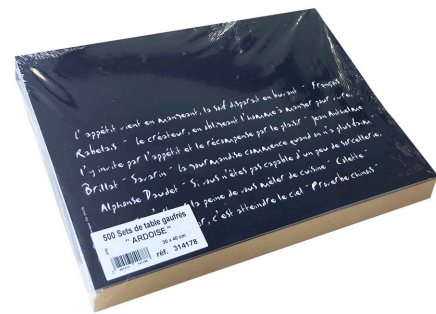 L'appétit vient en mangeant, la soif disparait en buvant - François
Rabelais - le créateur, en obligeant l'homme à manger pour vivre,
l'y invite par l'appétit et le récompense par le plaisir - Jean Anthelme
Brillat - Savarin - la gourmandise commence quand on n'a plus faim -
Alphonse Daudet - Si vous n'êtes pas capable d'un peu de sorcellerie,
la peine de vous mêler de cuisine - Colette -
c'est atteindre le ciel - Proverbe chinois -
500 Sets de table gaufrés
" ARDOISE "
30 x 40 cm
réf. 314178